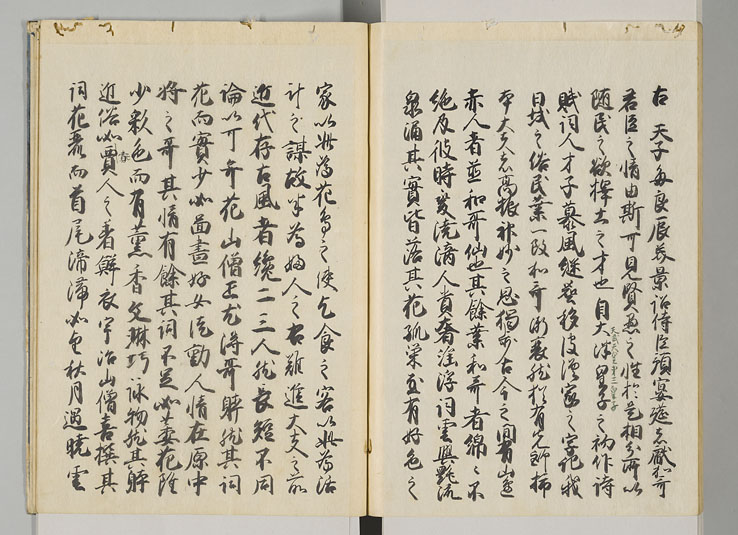 古天子每良辰美景詔侍臣預宴筵者獻和哥
君臣之情由斯可見賢愚之性於是相分所以
随民之欲擇士之才也自大津皇子之初作詩
賦詞人才子慕風継塵移彼漢家之字化我
日域之俗民業一改和哥漸衰然猶有先師柿
本大夫者高振神妙之思獨步古今之間有山邊
赤人者並和哥仙也其餘業和哥者綿々不
絶及彼時變澆漓人貴奢淫浮詞雲興艷流
泉涌其實皆落其花孤榮至有好色之
家以此為花鳥之使乞食之客以此為活
計之謀故半為婦人之右難進大夫之前
近代存古風者纔二三人然長短不同
論以可弁花山僧正尤得哥躰然其詞
花而實少如圖畫好女徒動人情在原中
将之哥其情有餘其詞不足如萎花雖
少彩色而有薰香文琳巧詠物然其躰
近俗如賈人之着鮮衣宇治山僧喜撰其
詞花麗而首尾渟滞如望秋月遇曉雲